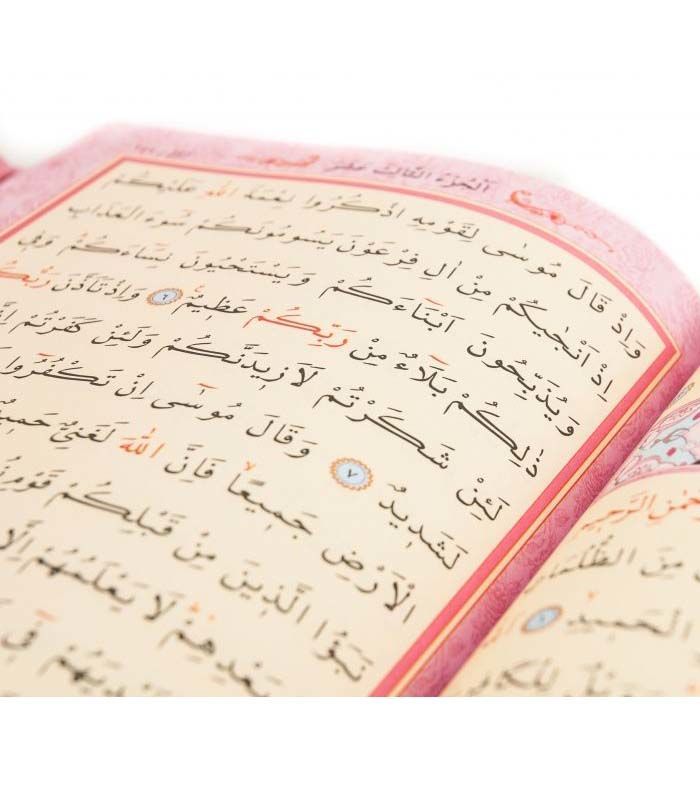 اَلْجُزْءُ الثَّالِثَ عَشَرَ
وَاِذْ قَالَ مُوسٰى لِقَوْمِهِ اذْكُرُوا نِعْمَةَ اللهِ عَلَيْكُمْ
اِذْ اَنْجٰيكُمْ مِنْ اٰلِ فِرْعَوْنَ يَسُومُونَكُمْ سُٓوءَ الْعَذَابِ
وَيُذَبِّحُونَ اَبْنَٓاءَكُمْ وَيَسْتَحْيُونَ نِسَٓاءَكُمْ وَفٖى
ذٰلِكُمْ بَلَٓاءٌ مِنْ رَبِّكُمْ عَظٖيمٌ ٦ وَاِذْ تَاَذَّنَ رَبُّكُمْ
لَئِنْ شَكَرْتُمْ لَاَزٖيدَنَّكُمْ وَلَئِنْ كَفَرْتُمْ
لَشَدٖيدٌ ٧ وَقَالَ مُوسٰٓى اِنْ تَكْفُرُٓوا
الْاَرْضِ جَمٖيعًا فَاِنَّ اللهَ لَغَنِىٌّ حَمٖيدٌ
نَبَؤُا الَّذٖينَ مِنْ قَبْلِكُمْ قَوْمِ
بَعْدِهِمْ لَا يَعْلَمُهُمْ اِلَّا
فٖٓى
الرَّحٖيمِ
مِنَ الظُّلُمَاتِ
الْحَمٖيدِ